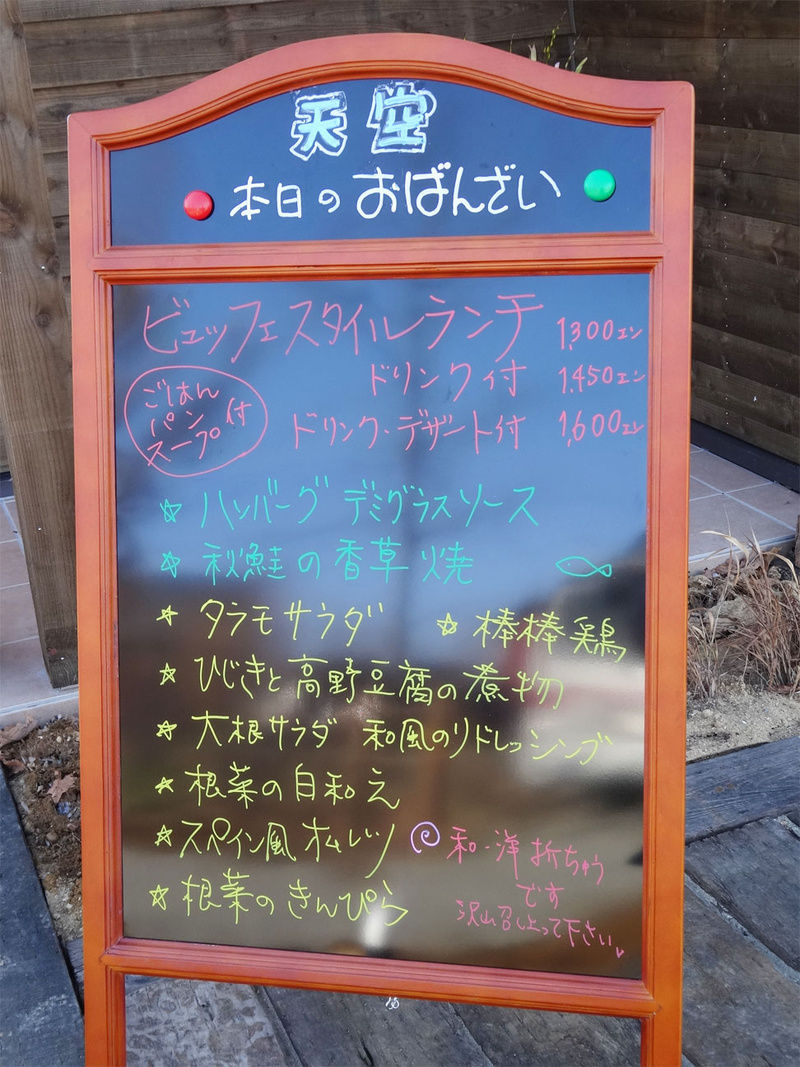 天空
本日のおばんざい
ビュッフェスタイルランチ 1,300エン
ドリンク付 1,450エン
ドリンク・デザート付 1,600エン
ごはん
パン
スープ付
☆ハンバーグ デミグラスソース
☆秋鮭の香草焼
☆タラモサラダ ☆棒棒鶏
☆ひじきと高野豆腐の煮物
☆大根サラダ 和風のりドレッシング
☆根菜の白和え
☆スペイン風オムレツ
☆根菜のきんぴら
和・洋折ちゅう
です
沢山召上って下さい